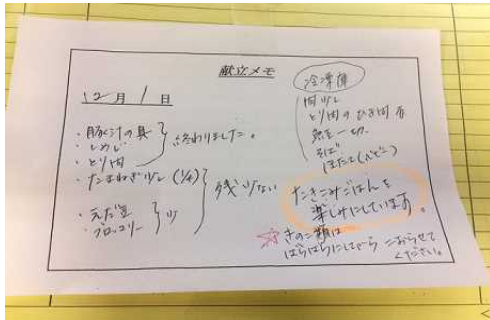 献立メモ
12月1日
・豚汁の具
・しめじ
・とり肉
終わりました。
・たまねぎ少し(1/4)
・えだ豆
・ブロッコリー
少
残り少ない
冷凍庫
肉少し
とり肉のひき肉有
魚を一切。
そば
ほたて
たきこみごはんを
楽しみにしています。
☆きのこ類は
ばらばらにしてからこおらせて
ください。